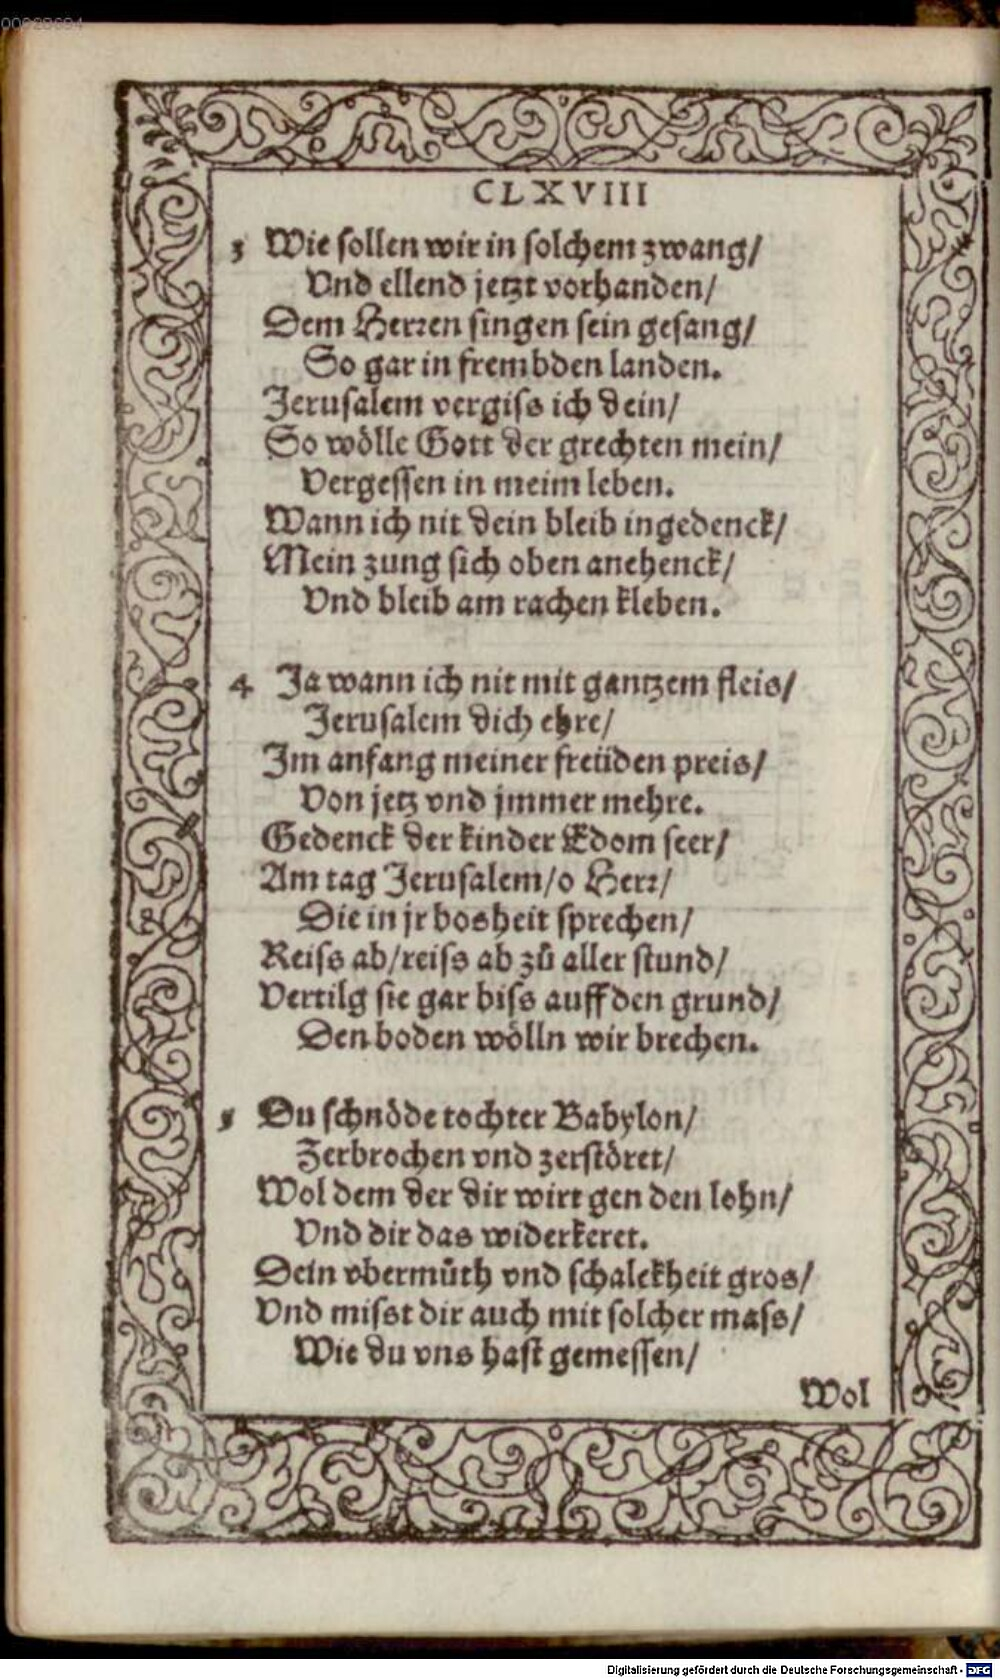 00028694
CLXVIII
3 Wie sollen wir in solchem zwang/
Vnd ellend jetzt vorhanden/
Dem Herren singen sein gesang/
So gar in frembden landen.
Jerusalem vergiss ich dein/
So wölle Gott der grechten mein/
Vergessen in meim leben.
Wann ich nit dein bleib ingedenck/
Mein zung sich oben anehenck/
Vnd bleib am rachen kleben.
4 Ja wann ich nit mit gantzem fleis/
Jerusalem dich ehre/
Im anfang meiner freüden preis/
Von jetz vnd jmmer mehre.
Gedenck der kinder Edom seer/
Am tag Jerusalem/o Herr/
Die in jr bosheit sprechen/
Reiss ab/reiss ab zů aller stund/
Vertilg sie gar biss auff den grund/
Den boden wölln wir brechen.
5 Du schnöde tochter Babylon/
Zerbrochen vnd zerstöret/
Wol dem der dir wirt gen den lohn/
Vnd dir das widerkeret.
Dein vbermůth vnd schalckheit gros/
Vnd misst dir auch mit solcher mass/
Wie du vns hast gemessen/
Wol
Digitalisierung gefördert durch die Deutsche Forschungsgemeinschaft - DFG